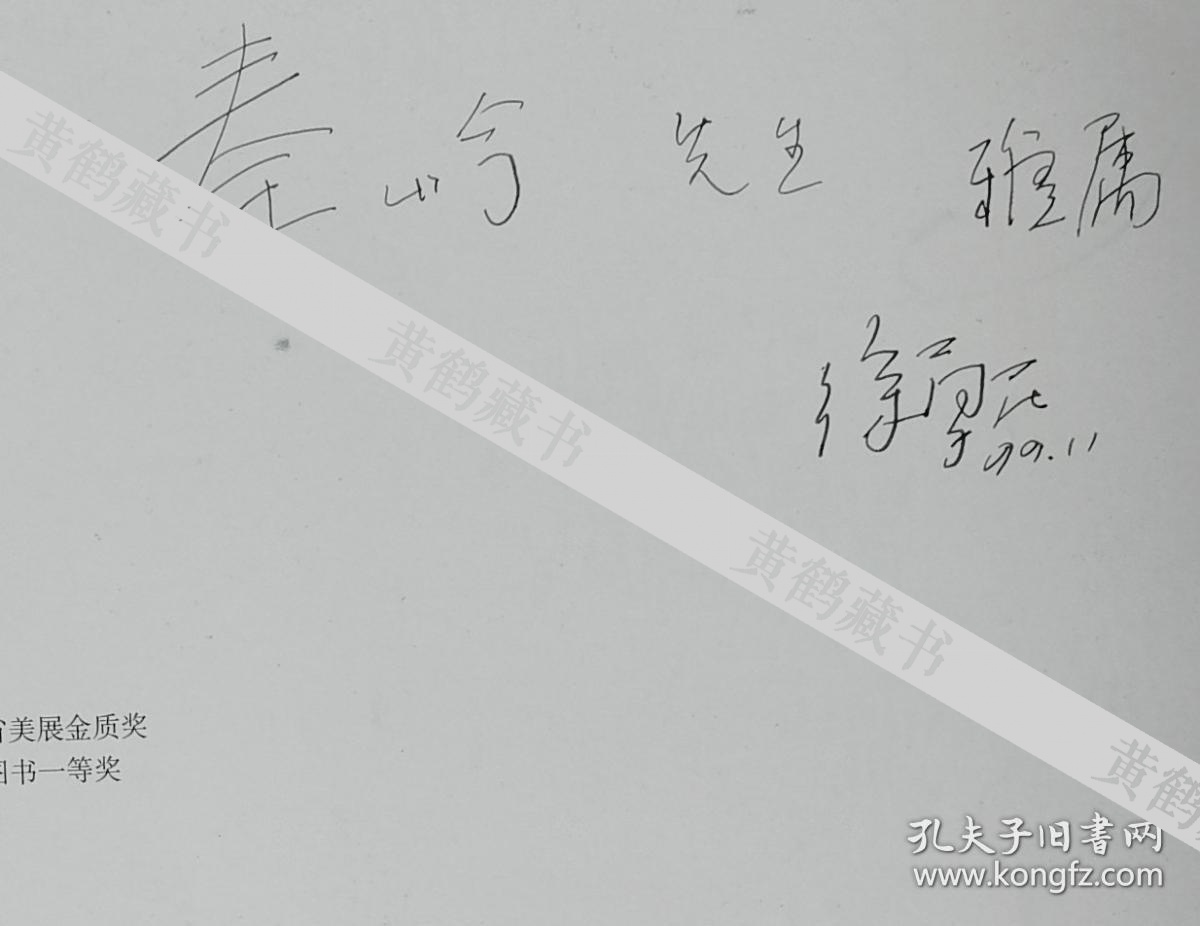 秦岭 先生 雅属
徐
99.11
黄鹤藏书
黄鹤藏书
黄鹤藏书
黄鹤
省美展金质奖
图书一等奖
孔夫子旧書网
www.kongfz.com